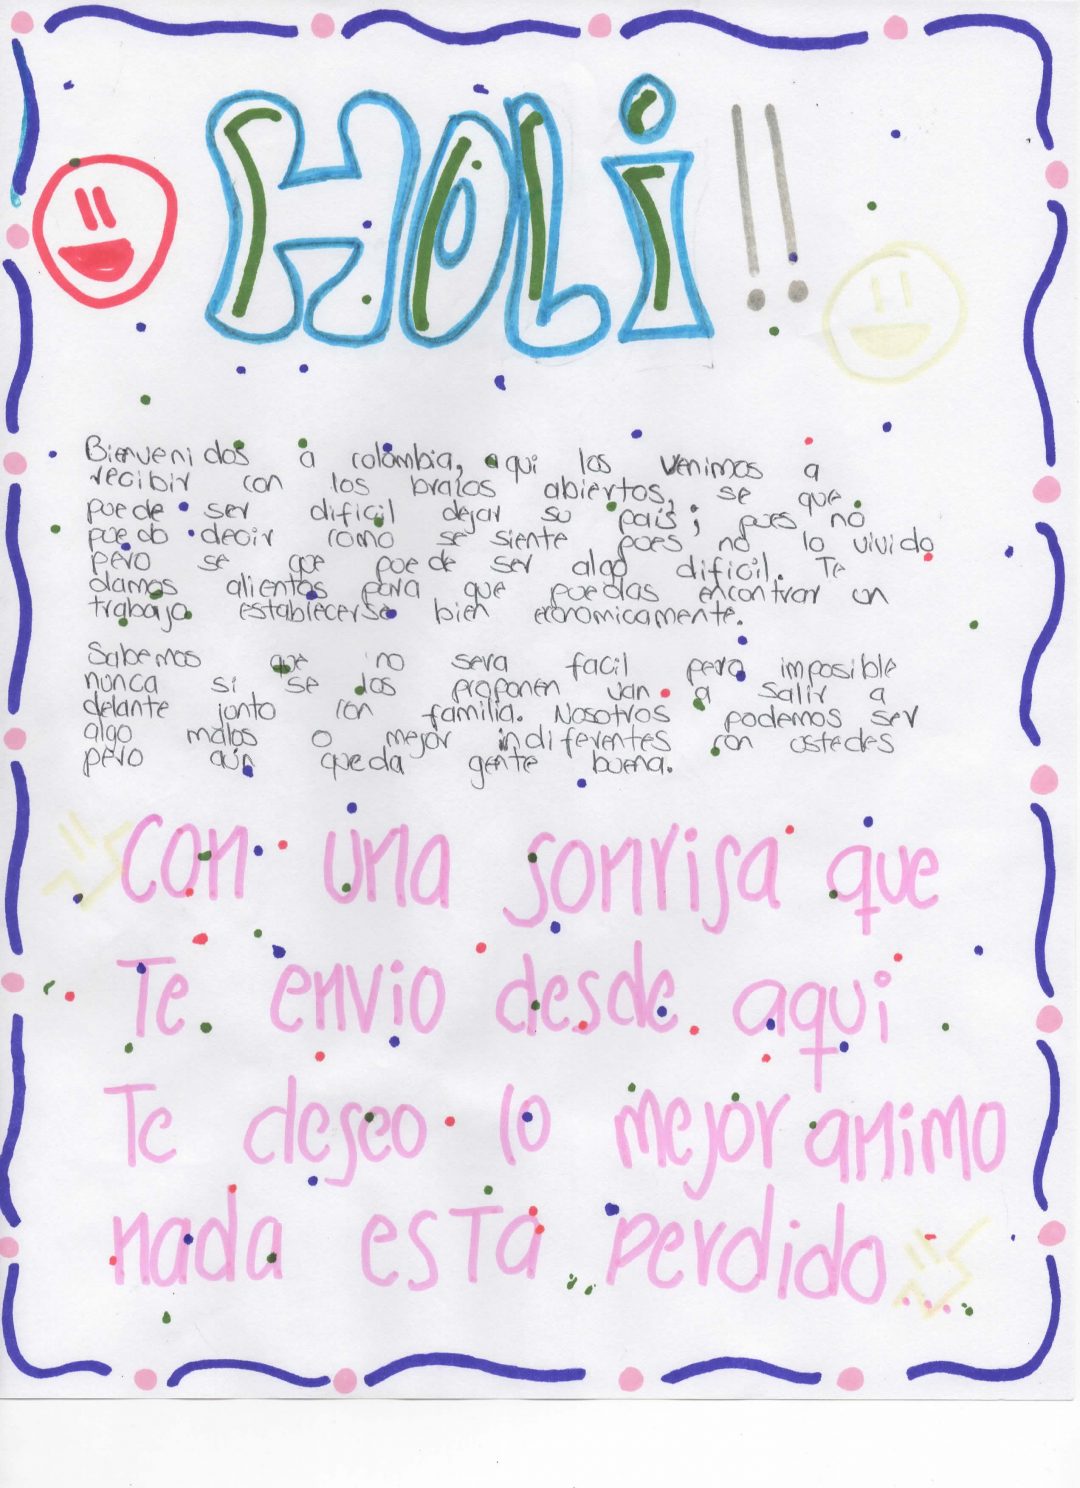 HOLi!!
Bienvenidos a colombia, aqui los venimos a
recibir con los brazos abiertos, se que
puede ser dificil dejar su pais; pues no
puedo decir como se siente pues no lo vivido
pero se que puede ser algo dificil. Te
damos alientos para que puedas encontrar un
trabajo establecerse bien economicamente.
Sabemos que no sera facil pero imposible
nunca si se los proponen van a salir a
delante junto con familia. Nosotros podemos ser
algo malos o mejor indiferentes con ustedes
pero aún queda gente buena.
Con una sonrisa que
Te envio desde aqui
Te deseo lo mejor animo
nada esta perdido...